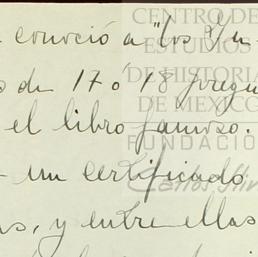 conoció a "los
de 17 ó 18
el libro famoso.
un certificado
y entre ellas
CENTRO DE
ESTUDIOS
DE HISTORIA
DE MEXICO
FUNDACIÓN
Carlos Slim